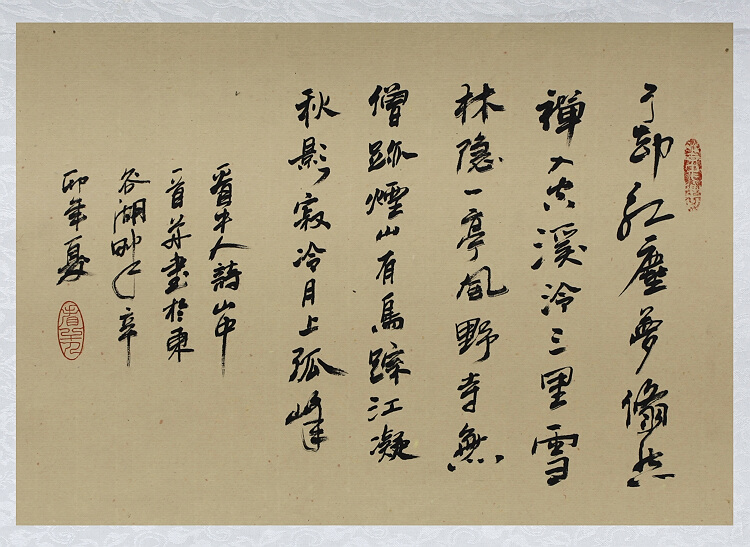 了却紅塵夢翛然
禪入空溪冷三里雪
林隱一亭風野寺無
僧跡煙山有鳥蹤江凝
秋影寂冷月上孤峰
人詩山中
一首并書於東
谷湖畔辛
卯年夏